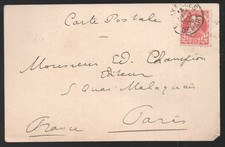 Carte Postale
Monsieur Ed. Champion
Editeur
5 Quai Malaquais
Paris
France